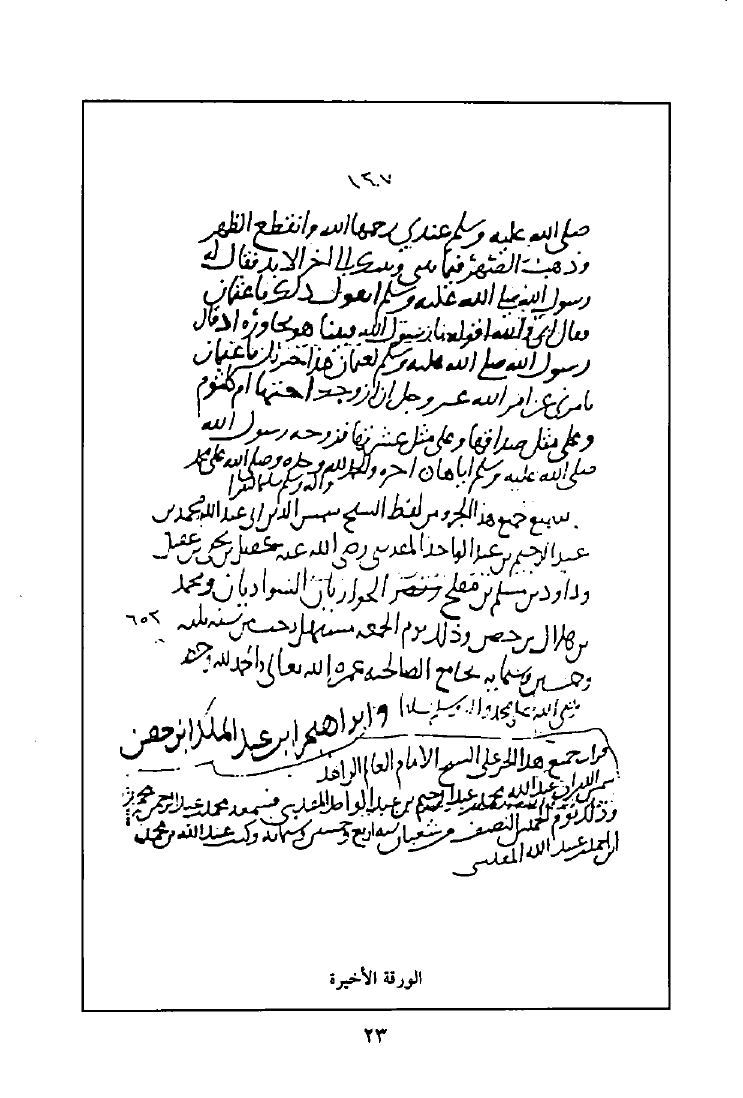 ١٢٠٧
صلى الله عليه وسلم عندي رحمها الله وانقطع الظهر
وذهبت الصهر فيما بيني وبينك الى اخر الابد فقال له
رسول الله صلى الله عليه وسلم اتقول ذلك يا عثمان
فقال اي والله اقوله يا رسول الله فبينا هو يحاوره اذ قال
رسول الله صلى الله عليه وسلم لعثمان هذا جبريل يا عثمان
يامرني عن امر الله عز وجل ان ازوجك اختها ام كلثوم
وعلى مثل صداقها وعلى مثل عشرتها فزوجه رسول الله
صلى الله عليه وسلم اياها اخره والحمد لله وحده وصلى الله على محمد
واله وسلم تسليما كثيرا
سمع جميع هذا الجزو من لفظ الشيخ شمس الدين ابي عبد الله محمد بن
عبد الرحيم بن عبد الواحد المقدسي رضي الله عنه عقيل بن يحيى بن عقيل
وداود بن مسلم بن مفلح النسواديان ومحمد
بن هلال بن وذلك يوم الجمعه مستهل رجب من سنه ثلث ٦٥٣
وخمسين وستمايه بجامع الصالحيه عمره الله تعالى والحمد لله وحده
صلى الله على محمد واله وسلم تسليما وابراهيم ابن عبد الملك ابن
قرات جميع هذا الجز على الشيخ الامام العالم الزاهد
شمس الدين ابي عبد الله محمد بن عبد الرحيم بن عبد الواحد المقدسي فسمعه محمد بن عبد الرحمن بن
وذلك يوم الخميس النصف من شعبان سنه اربع وخمسين وستمايه وكتب عبد الله بن محمد
ابن احمد بن عبد الله المقدسي
الورقة الأخيرة
٢٣